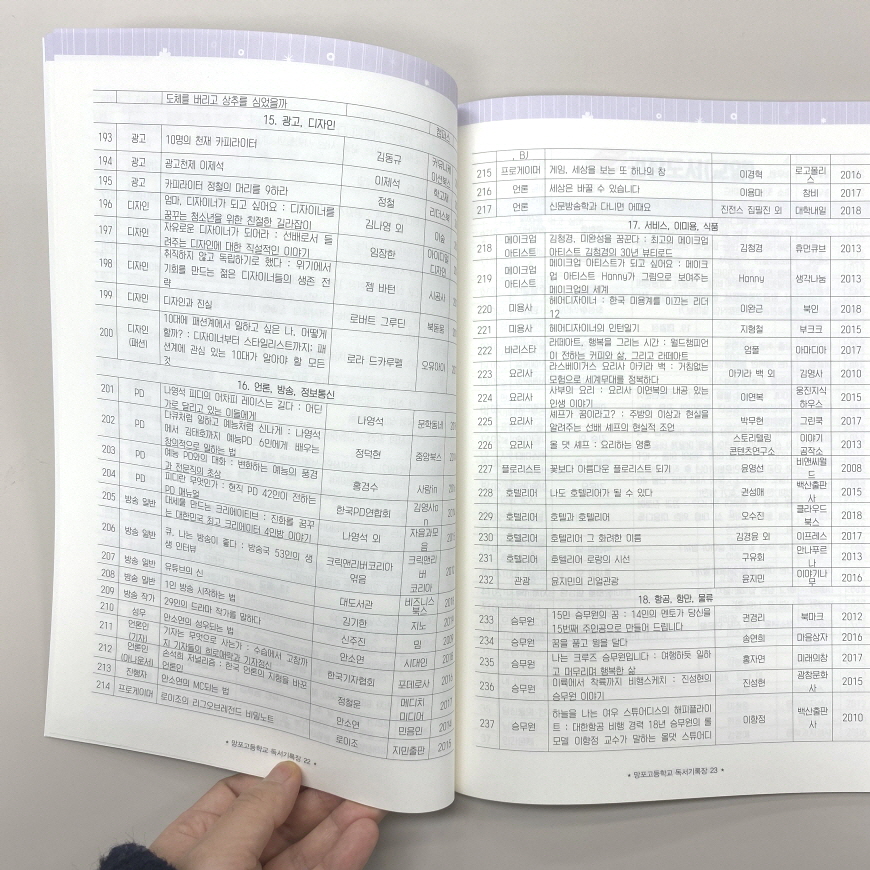 도체를 버리고 상추를 심었을까
15. 광고, 디자인
193 광고 10명의 천재 카피라이터 김동규
194 광고 광고천재 이제석 이제석
195 광고 카피라이터 정철의 머리를 9하라 정철
196 디자인 엄마, 디자이너가 되고 싶어요 : 디자이너를 김나영 외
꿈꾸는 청소년을 위한 친절한 길라잡이
197 디자인 자유로운 디자이너가 되어라 : 선배로서 들 임장한
려주는 디자인에 대한 직설적인 이야기
198 디자인 취직하지 않고 독립하기로 했다 : 위기에서 젬 바턴 시공사
기회를 만드는 젊은 디자이너들의 생존 전
략
199 디자인 디자인과 진실 로버트 그루딘 북돋움
200 디자인 (패션) 10대에 패션계에서 일하고 싶은 나, 어떻게 로라 드카루펠 오유아이
할까? : 디자이너부터 스타일리스트까지; 패
션계에 관심 있는 10대가 알아야 할 모든
것
16. 언론, 방송, 정보통신
201 PD 나영석 피디의 어차피 레이스는 길다 : 어딘 나영석 문학동네
가로 달리고 있는 이들에게
202 PD 다큐처럼 일하고 예능처럼 신나게 : 나영석 정덕현 중앙북스
에서 김태호까지 예능PD 6인에게 배우는
창의적으로 일하는 법
203 PD 예능 PD와의 대화 : 변화하는 예능의 풍경 홍경수 사람in
과 전문직의 초상
204 PD 피디란 무엇인가 : 현직 PD 42인이 전하는 한국PD연합회 김영사on
PD 매뉴얼
205 방송 일반 대세를 만드는 크리에이티브 : 진화를 꿈꾸 나영석 외
는 대한민국 최고 크리에이터 4인방 이야기
206 방송 일반 큐, 나는 방송이 좋다 : 방송국 53인의 생 크릭앤리버코리아 엮음 크릭앤리버코리아
생 인터뷰
207 방송 일반 유튜브의 신 대도서관 비즈니스북스
208 방송 일반 1인 방송 시작하는 법 김기한 지노
209 방송 작가 29인의 드라마 작가를 말하다 신주진 밈
210 성우 안소연의 성우되는 법 안소연 시대인
211 언론인 (기자) 기자는 무엇으로 사는가 : 수습에서 고참까 한국기자협회 포데로사
지 기자들의 희로애락과 기자정신
212 언론인 (아나운서) 손석희 저널리즘 : 한국 언론의 지형을 바꾼 정철운 메디치미디어
언론인
213 진행자 안소연의 MC되는 법 안소연
214 프로게이머 로이조의 리그오브레전드 비밀노트 로이조 지민출판 2015
• 망포고등학교 독서기록장 22 •
, BJ
215 프로게이머 게임, 세상을 보는 또 하나의 창 이경혁 로고폴리스 2016
216 언론 세상은 바꿀 수 있습니다 이용마 창비 2017
217 언론 신문방송학과 다니면 어때요 진전스 집필진 외 대학내일 2018
17. 서비스, 이미용, 식품
218 메이크업 아티스트 김청경, 미완성을 꿈꾼다 : 최고의 메이크업 김청경 휴먼큐브 2013
아티스트 김청경의 30년 뷰티로드
219 메이크업 아티스트 메이크업 아티스트가 되고 싶어요 : 메이크 Hanny 생각나눔 2013
업 아티스트 Hanny가 그림으로 보여주는
메이크업의 세계
220 미용사 헤어디자이너 : 한국 미용계를 이끄는 리더 이완근 북인 2018
12
221 미용사 헤어디자이너의 인턴일기 지형철 부크크 2015
222 바리스타 라떼아트, 행복을 그리는 시간 : 월드챔피언 엄폴 아마디아 2017
이 전하는 커피와 삶, 그리고 라떼아트
223 요리사 라스베이거스 요리사 아키라 백 : 거침없는 아키라 백 외 김영사 2010
모험으로 세계무대를 정복하다
224 요리사 사부의 요리 : 요리사 이연복의 내공 있는 이연복 웅진지식하우스 2015
인생 이야기
225 요리사 셰프가 꿈이라고? : 주방의 이상과 현실을 박무현 그린쿡 2017
알려주는 선배 셰프의 현실적 조언
226 요리사 올 댓 셰프 : 요리하는 영혼 스토리텔링 콘텐츠연구소 이야기공작소 2013
227 플로리스트 꽃보다 아름다운 플로리스트 되기 윤영선 비앤씨월드 2008
228 호텔리어 나도 호텔리어가 될 수 있다 권성애 백산출판사 2015
229 호텔리어 호텔과 호텔리어 모수진 클라우드북스 2018
230 호텔리어 호텔리어 그 화려한 이름 김경용 외 이프레스 2017
231 호텔리어 호텔리어 로랑의 시선 구유회 안나푸르나 2013
232 관광 윤지민의 리얼관광 윤지민 이야기나무 2016
18. 항공, 항만, 물류
233 승무원 15인 승무원의 꿈 : 14인의 멘토가 당신을 권경리 북마크 2012
15번째 주인공으로 만들어 드립니다
234 승무원 꿈을 품고 땀을 달다 송연희 마음상자 2016
235 승무원 나는 크루즈 승무원입니다 : 여행하듯 일하 홍자연 미래의창 2017
고 머무르며 행복한 삶
236 승무원 이륙에서 착륙까지 비행스케치 : 진성현의 진성현 광창문화사 2015
승무원 이야기
237 승무원 하늘을 나는 여우 스튜어디스의 해피플라이 이향정 백산출판사 2010
트 : 대한항공 비행 경력 18년 승무원의 롤
모델 이향정 교수가 말하는 올댓 스튜어디
• 망포고등학교 독서기록장 23 •